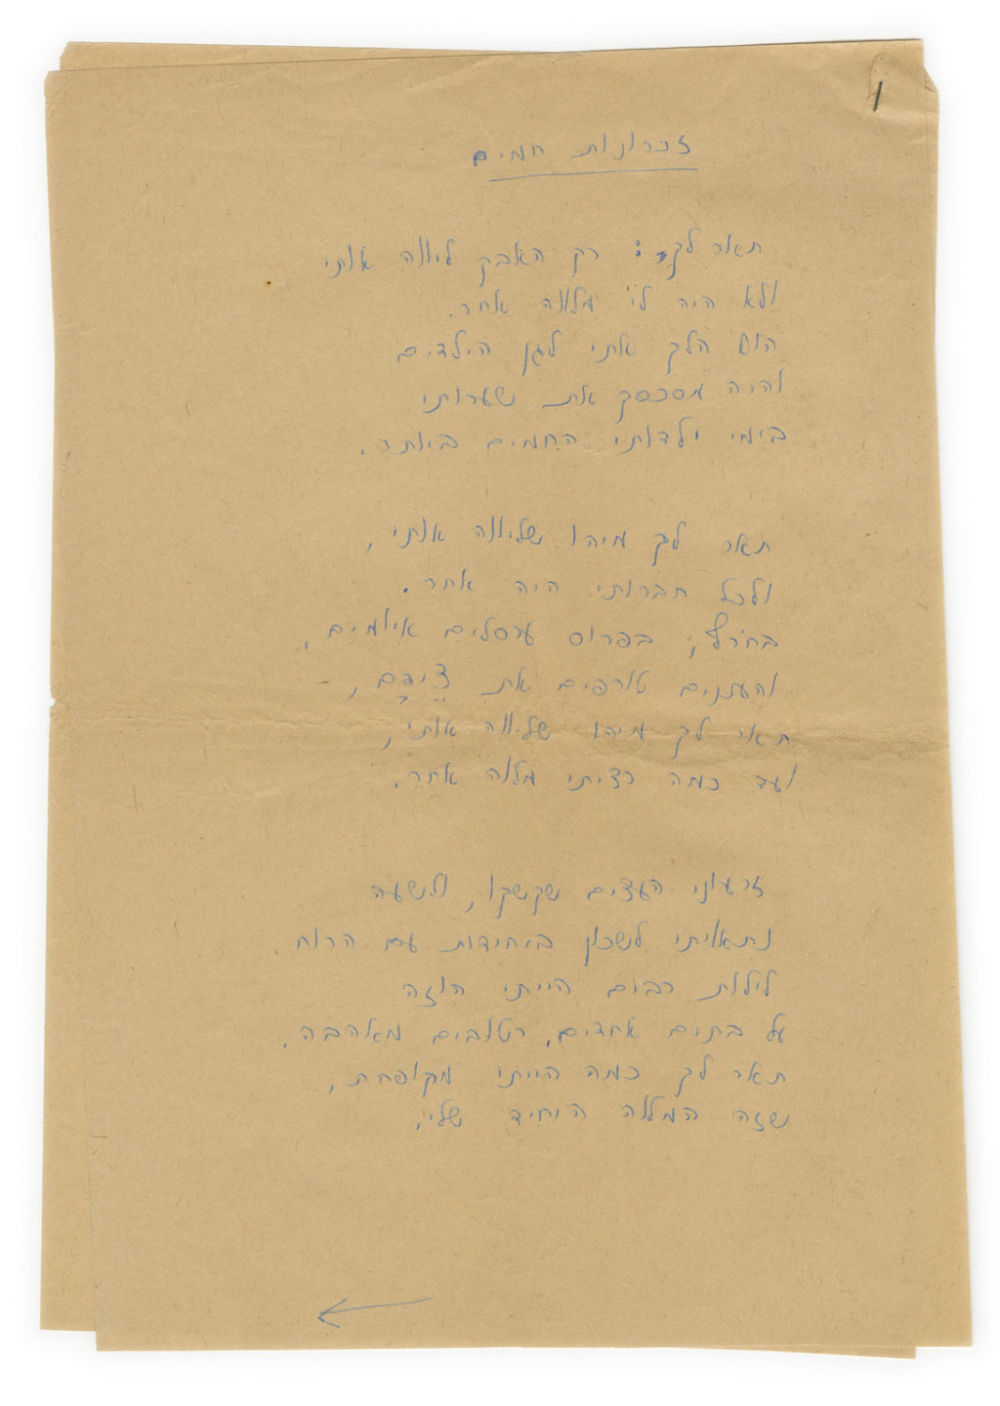 זכרונות חמים
תאר לך: רק האבק ליווה אותי
ולא היה לי מלווה אחר.
הוא הלך אתי לגן הילדים
והיה מסכסך את שערותי
בימי ילדותי החמים ביותר.
תאר לך מיהו שליווה אותי,
ולכל חברותי היה אחר.
בחרף, בפרוס ערסלים איומים,
והעננים טורפים את צידם,
תאר לך מיהו שליווה אותי,
ועד כמה רציתי מלווה אחר.
זרעוני העצים שקשקו, ולשעה
נתאויתי לשכון ביחידות עם הרוח.
לילות רבים הייתי הוזה
על בתים אחדים, רטובים מאהבה.
תאר לך כמה הייתי מקופחת,
שזה המלווה היחיד שלי.